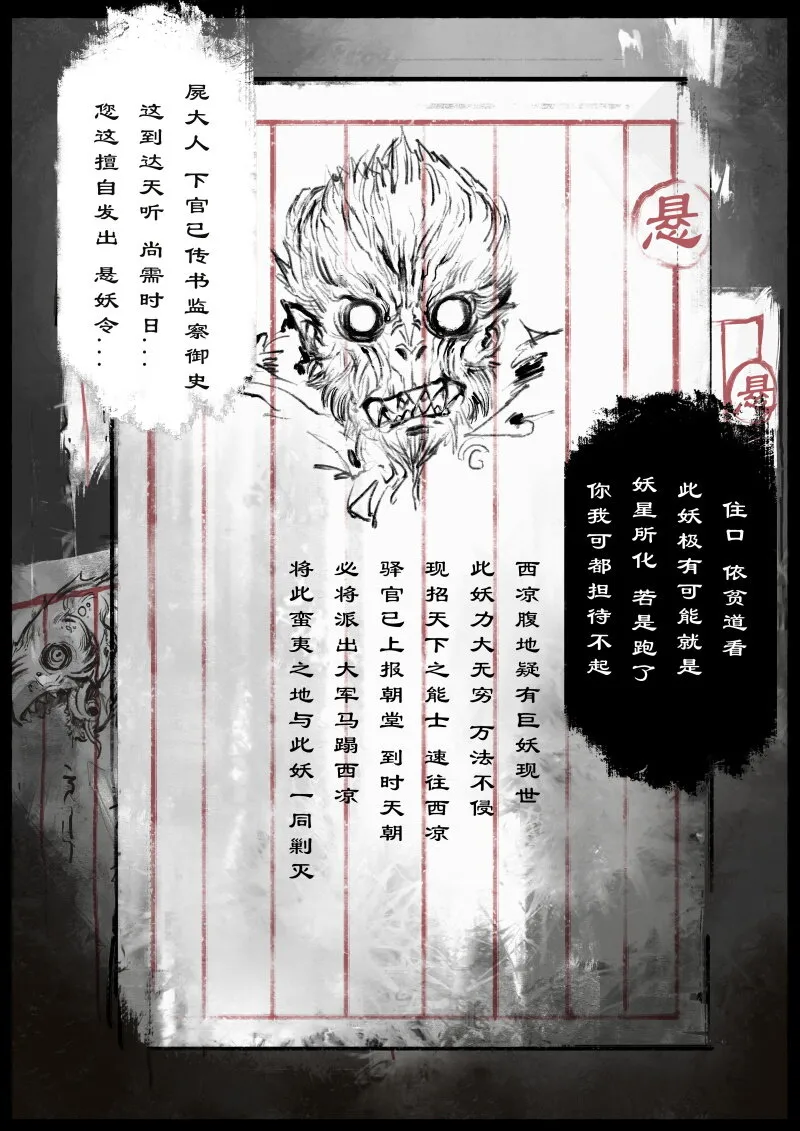 悬
悬
屍大人 下官已传书监察御史
这到达天听 尚需时日...
您这擅自发出 悬妖令...
住口 依贫道看
此妖极有可能就是
妖星所化 若是跑了
你我可都担待不起
西凉腹地疑有巨妖现世
此妖力大无穷 万法不侵
现招天下之能士 速往西凉
驿官已上报朝堂 到时天朝
必将派出大军马蹋西凉
将此蛮夷之地与此妖一同剿灭